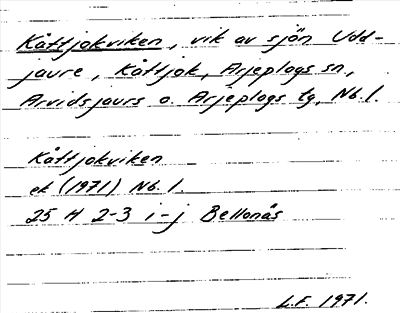 Kåttjokviken, vik av sjön Udd-
jaure, Kåttjok, Arjeplogs sn,
Arvidsjaurs o. Arjeplogs tg, Nb. l.
Kåttjokviken
ek (1971) Nb. l.
25 H 2-3 i-j Bellonäs
L.F. 1971.